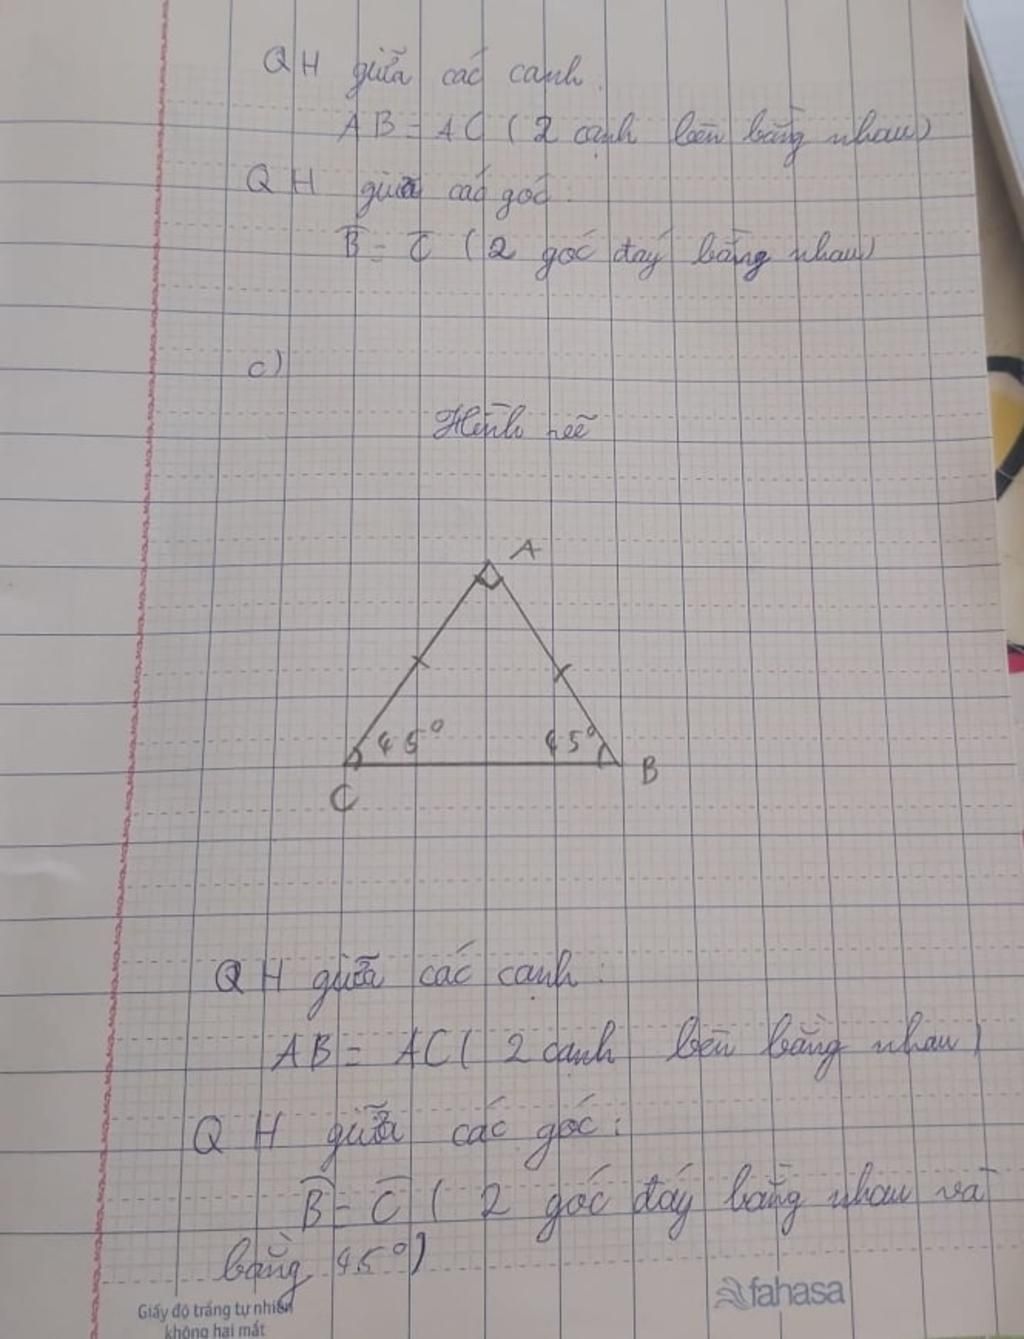 QH giữa các cạnh.
AB = AC ( 2 cạnh bên bằng nhau)
QH giữa các góc:
B̂ = Ĉ ( 2 góc đáy bằng nhau)
c)
Hình vẽ
A
45° 45°
C B
QH giữa các cạnh:
AB = AC ( 2 cạnh bên bằng nhau)
QH giữa các góc:
B̂ = Ĉ ( 2 góc đáy bằng nhau và
bằng 45°)
fahasa
Giấy độ trắng tự nhiên
không hai mắt